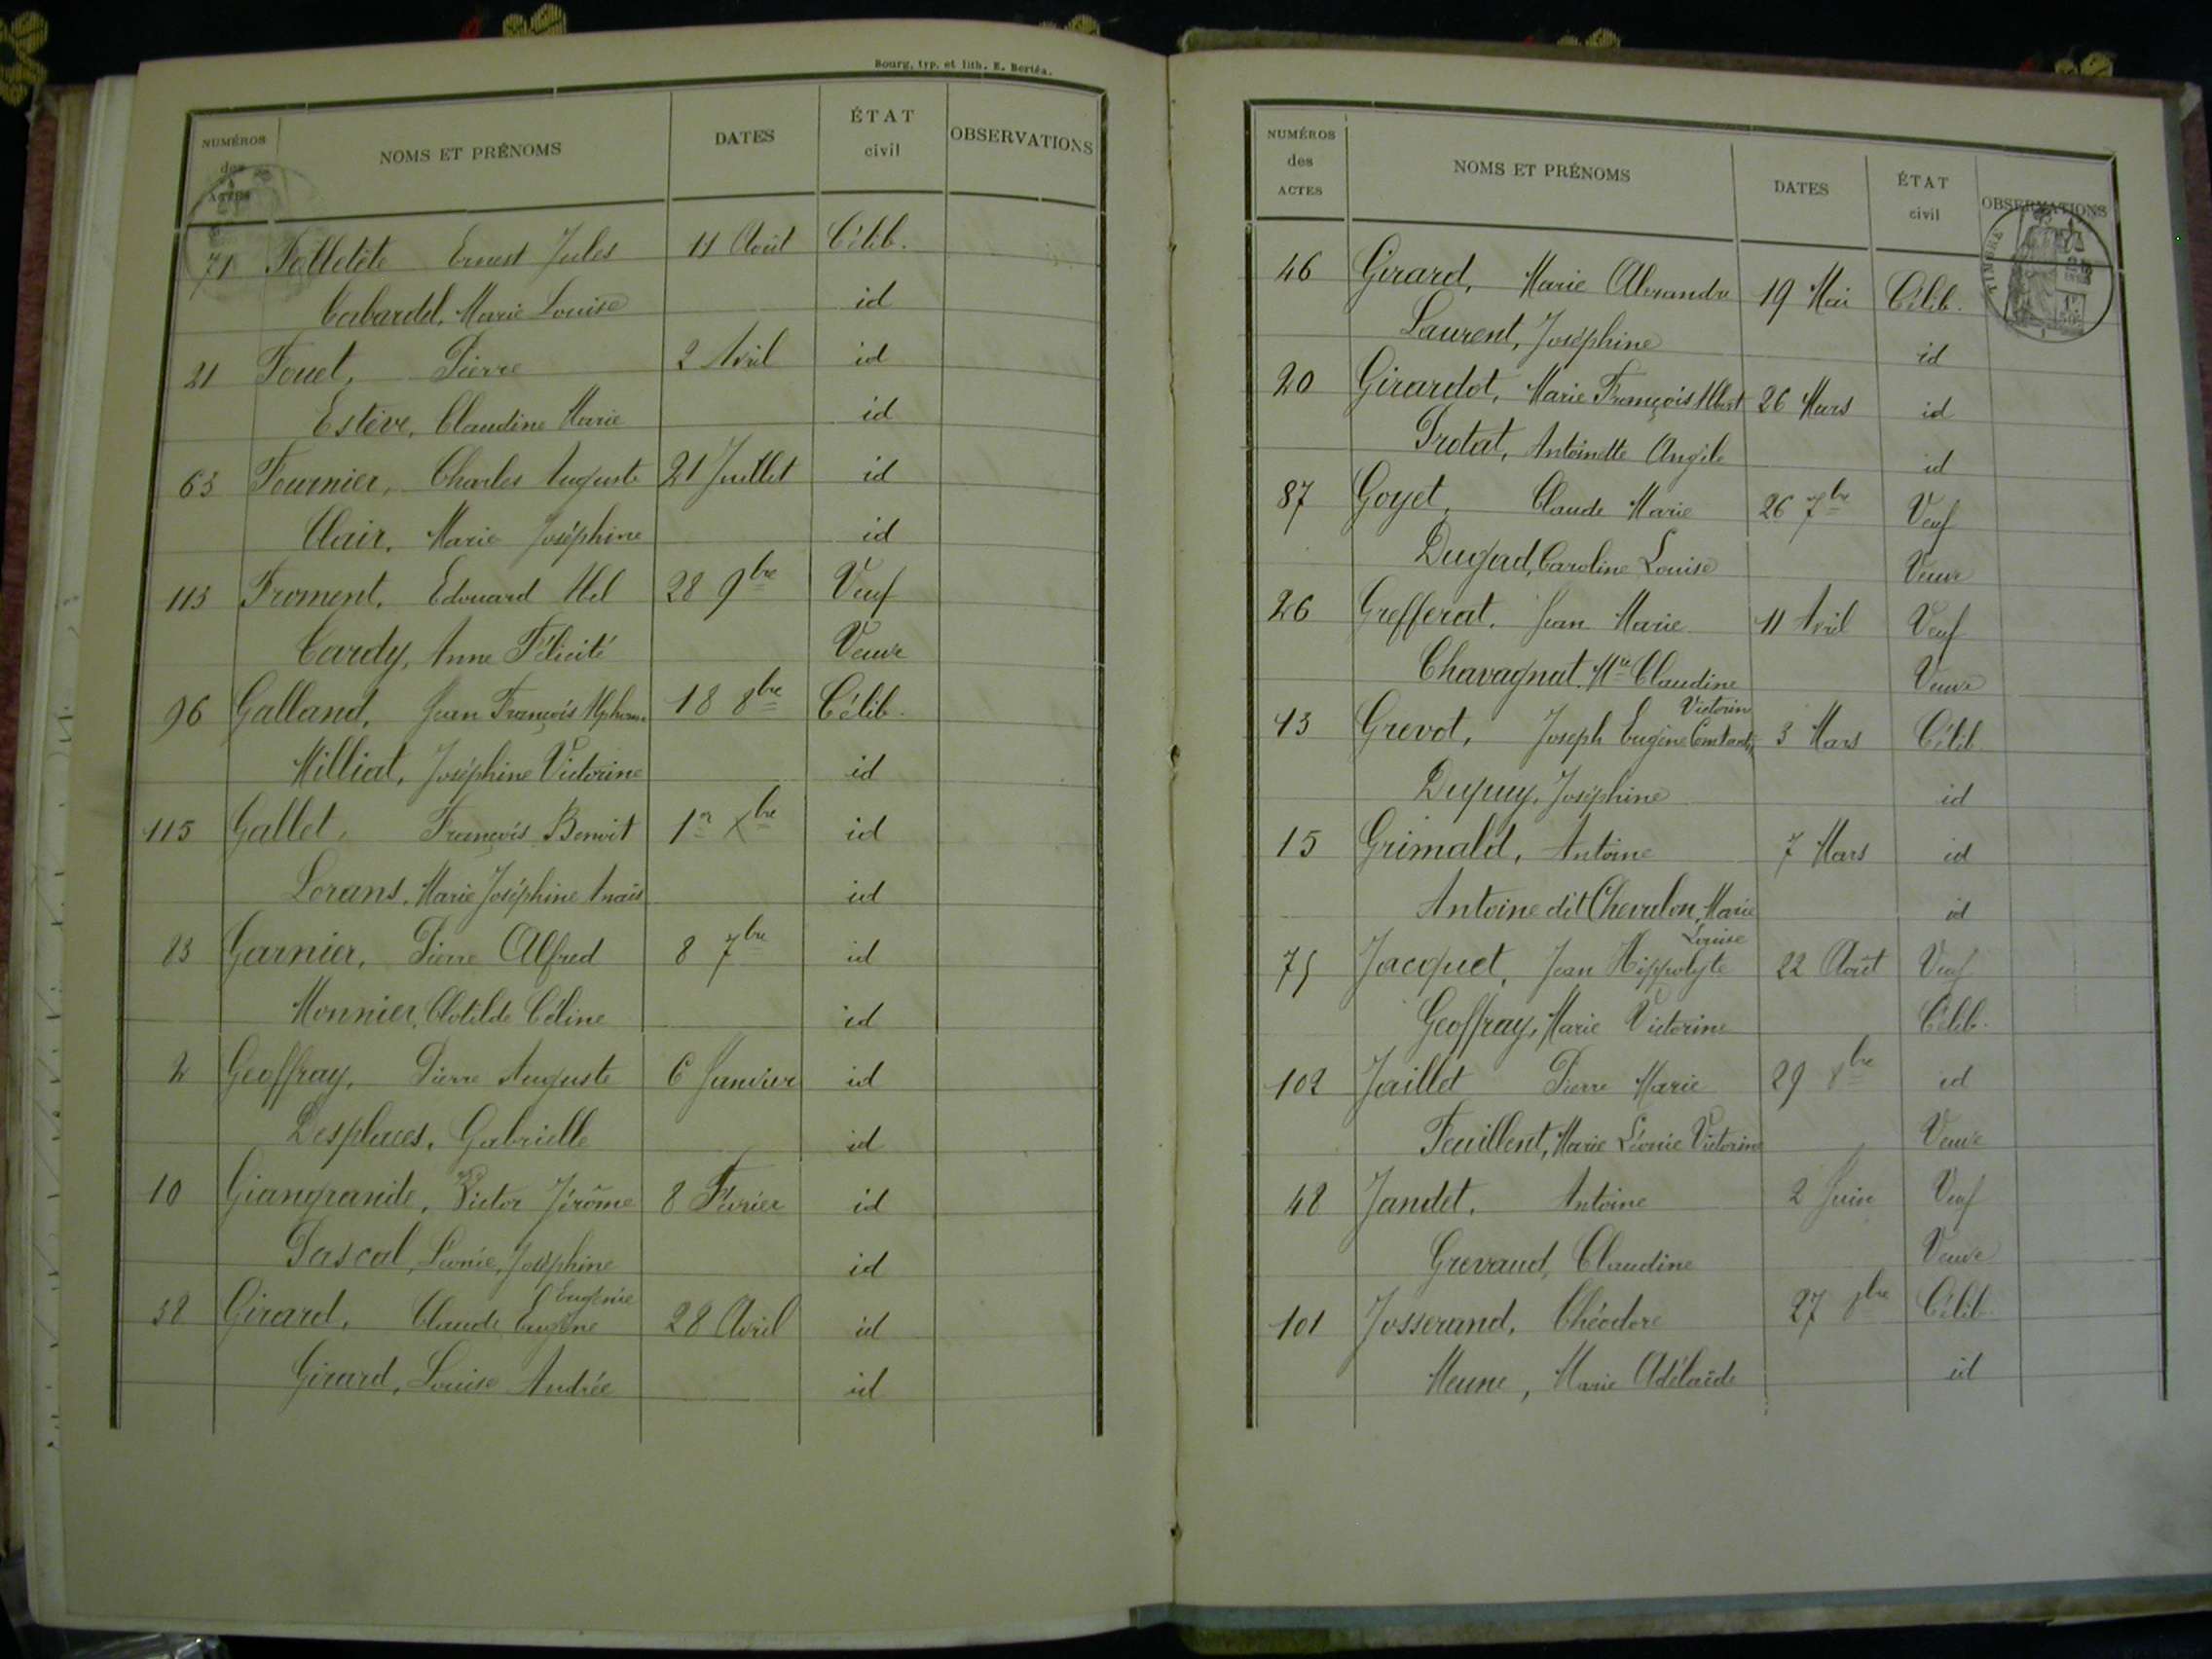 Bourg, typ. et lith. E. Bertéa.
NUMÉROS des ACTES NOMS ET PRÉNOMS DATES ÉTAT civil OBSERVATIONS
71 Folletête Ernest Jules 11 Août Célib.
Cabardel, Marie Louise id
21 Fouet, Pierre 2 Avril id
Estève, Claudine Marie id
63 Fournier, Charles Auguste 21 Juillet id
Clair, Marie Joséphine id
113 Froment, Edouard Abel 28 9bre Veuf
Cardy, Anne Félicité Veuve
96 Galland, Jean François Alphonse 18 8bre Célib.
Milliat, Joséphine Victorine id
115 Gallet, François Benoit 1er Xbre id
Lorans, Marie Joséphine Anaïs id
83 Garnier, Pierre Alfred 8 7bre id
Monnier, Clotilde Céline id
2 Geoffray, Pierre Auguste 6 Janvier id
Desplaces, Gabrielle id
10 Giangrande, Victor Jérôme 8 Février id
Pascal, Léonie, Joséphine id
Eugénie
38 Girard, Claude Eugène 28 Avril id
Girard, Louise Andrée id
NUMÉROS des ACTES NOMS ET PRÉNOMS DATES ÉTAT civil OBSERVATIONS
TIMBRE
46 Girard, Marie Alexandre 19 Mai Célib.
Laurent, Joséphine id
20 Girardot, Marie François Albert 26 Mars id
Protat, Antoinette Angèle id
87 Goyet, Claude Marie 26 7bre Veuf
Dugad, Caroline Louise Veuve
26 Grefferat, Jean Marie 11 Avril Veuf
Chavagnat, Mie Claudine Veuve
Victorin
13 Grevot, Joseph Eugène Constantin 3 Mars Célib.
Dupuy, Joséphine id
15 Grimald, Antoine 7 Mars id
Antoine dit Chevalon, Marie id
Louise
75 Jacquet, Jean Hippolyte 22 Août Veuf
Geoffray, Marie Victorine Célib.
102 Jaillet Pierre Marie 29 8bre id
Feuillent, Marie Léonie Victorine Veuve
48 Jandet, Antoine 2 Juin Veuf
Grevaud, Claudine Veuve
101 Josserand, Théodore 27 8bre Célib.
Meune, Marie Adélaïde id